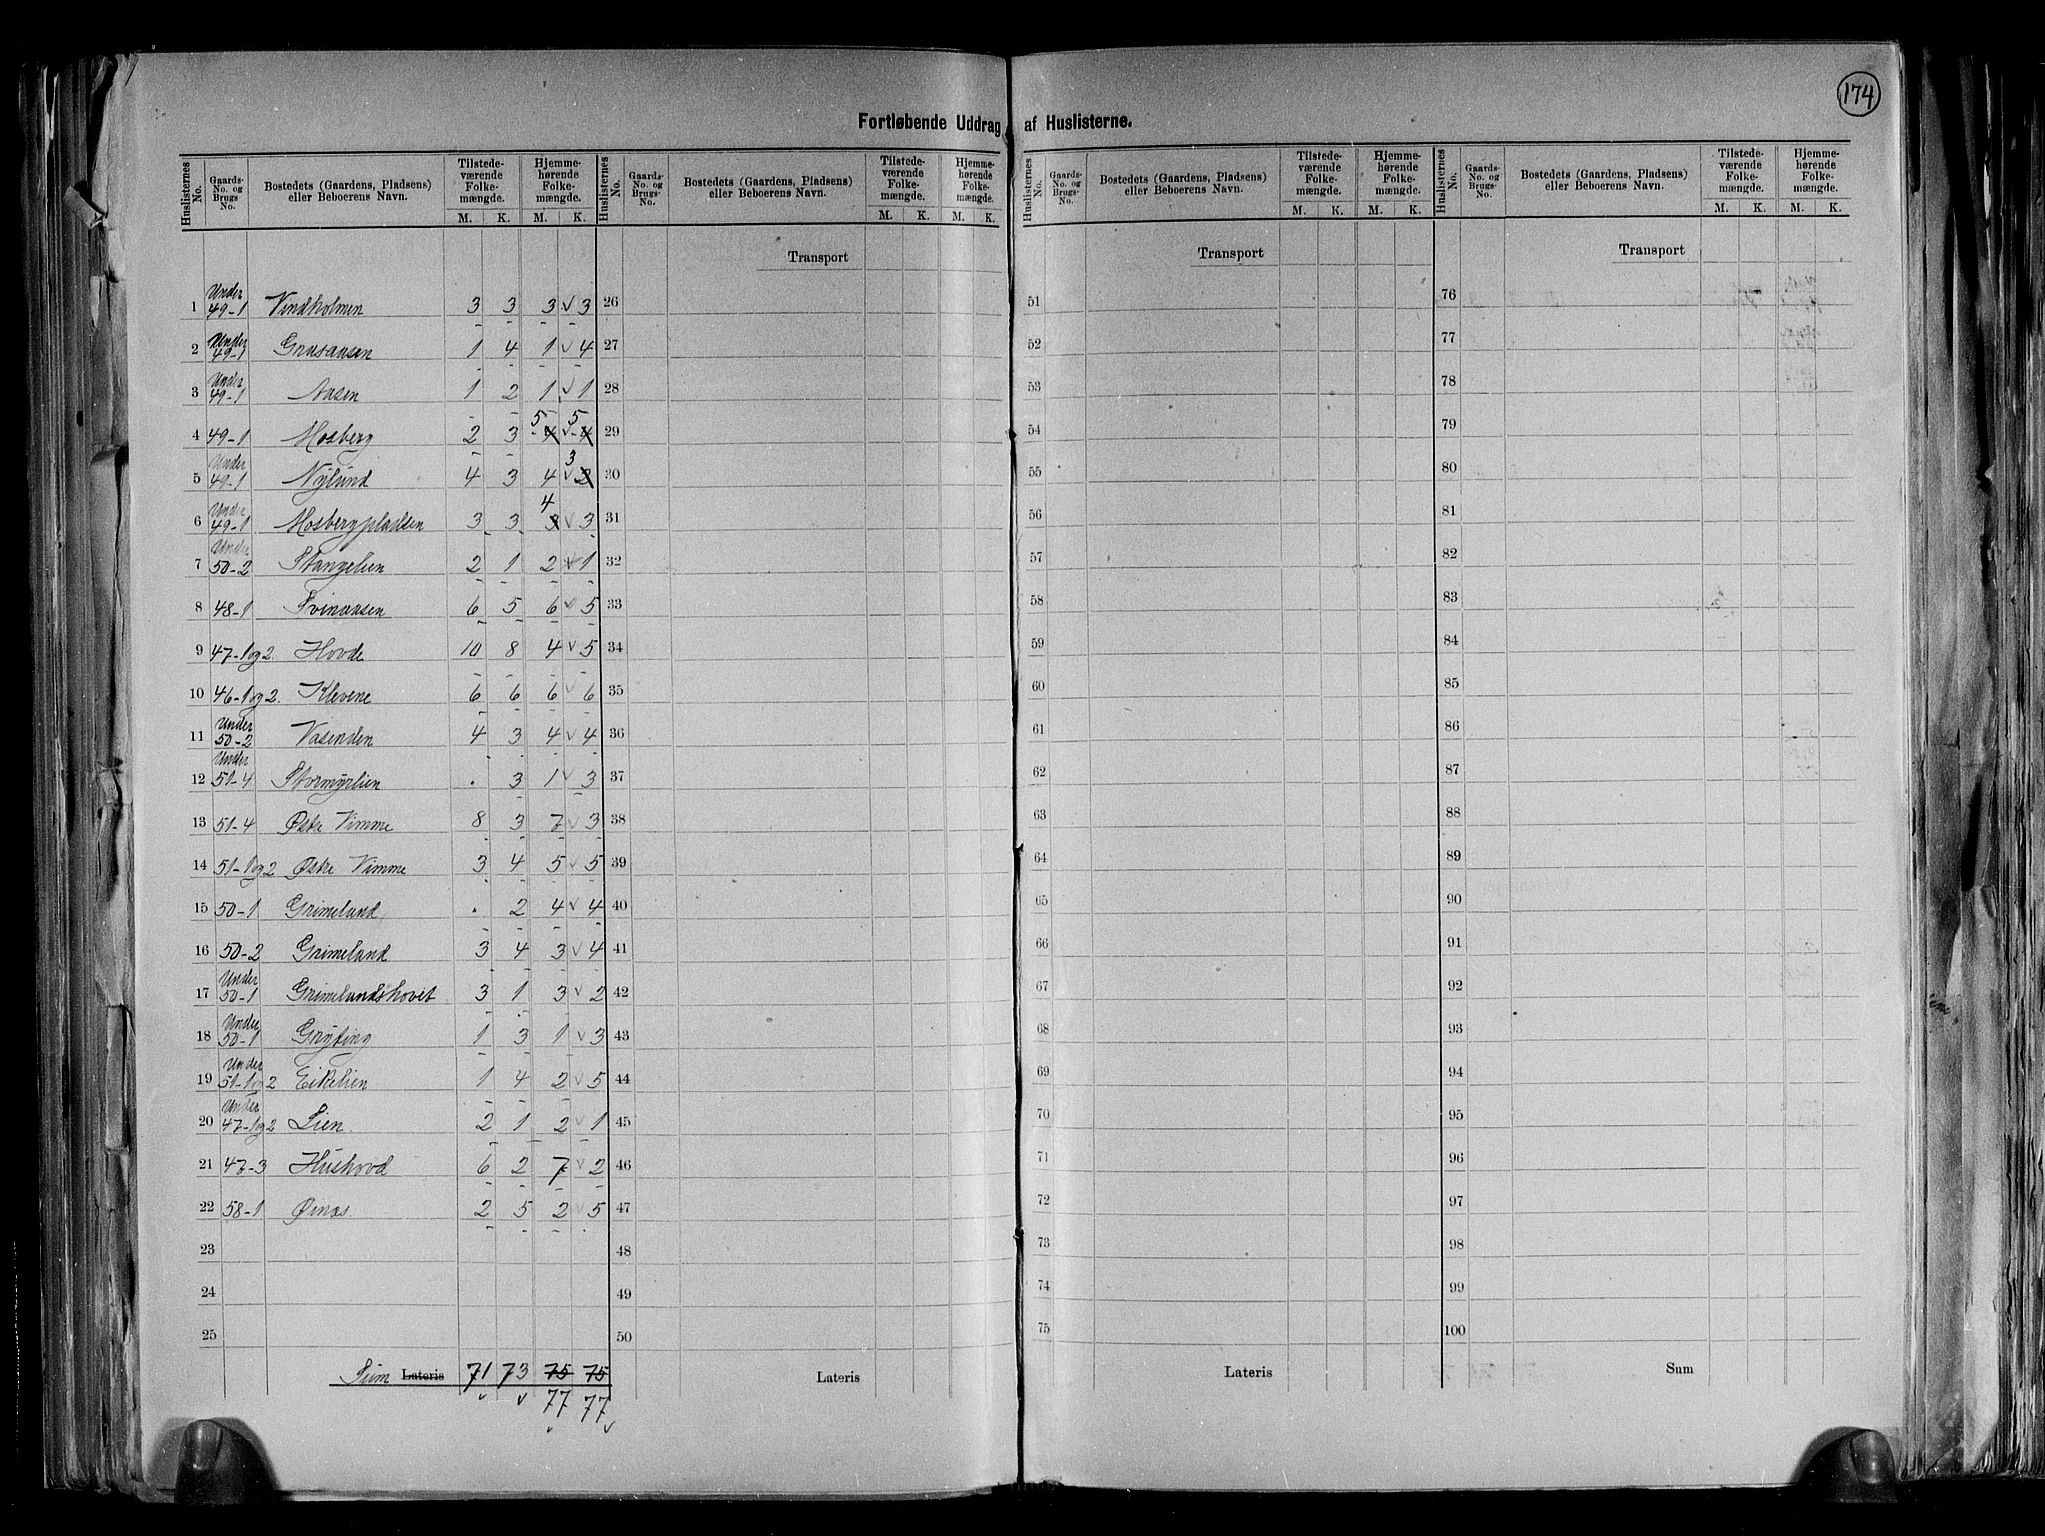 174
Fortløbende Uddrag af Huslisterne.
Huslisternes No. Gaards-No. og Brugs-No. Bostedets (Gaardens, Pladsens) eller Beboerens Navn. Tilstedeværende Folkemængde. M. K. Hjemmehørende Folkemængde. M. K.
Huslisternes No. Gaards-No. og Brugs-No. Bostedets (Gaardens, Pladsens) eller Beboerens Navn. Tilstedeværende Folkemængde. M. K. Hjemmehørende Folkemængde. M. K.
Huslisternes No. Gaards-No. og Brugs-No. Bostedets (Gaardens, Pladsens) eller Beboerens Navn. Tilstedeværende Folkemængde. M. K. Hjemmehørende Folkemængde. M. K.
Huslisternes No. Gaards-No. og Brugs-No. Bostedets (Gaardens, Pladsens) eller Beboerens Navn. Tilstedeværende Folkemængde. M. K. Hjemmehørende Folkemængde. M. K.
Transport Transport Transport
1 Under 49-1 Vindholmen 3 3 3 3 26 51 76
2 Under 49-1 Grasaasen 1 4 1 4 27 52 77
3 Under 49-1 Aasen 1 2 1 1 28 53 78
4 49-1 Mosberg 2 3 4 5 4 5 29 54 79
5 Under 49-1 Nylund 4 3 4 2 3 30 55 80
6 Under 49-1 Mosbergpladsen 3 3 3 4 3 31 56 81
7 Under 50-2 Stangelien 2 1 2 1 32 57 82
8 48-1 Svinaasen 6 5 6 5 33 58 83
9 47-1og2. Hovde 10 8 4 5 34 59 84
10 46-1og2. Klevene 6 6 6 6 35 60 85
11 Under 50-2 Vasenden 4 3 4 4 36 61 86
12 Under 51-4 Stormyrlien . 3 1 3 37 62 87
13 51-4 Østre Vimme 8 3 7 3 38 63 88
14 51-1og2 Østre Vimme 3 4 5 5 39 64 89
15 50-1 Grimeland . 2 4 4 40 65 90
16 50-2 Grimeland 3 4 3 4 41 66 91
17 Under 50-1 Grimelandshovet 3 1 3 2 42 67 92
18 Under 50-1 Gryting 1 3 1 3 43 68 93
19 Under 51-1og2 Eikelien 1 4 2 5 44 69 94
20 Under 47-1og2 Lien. 2 1 2 1 45 70 95
21 47-3 Hushovd 6 2 7 2 46 71 96
22 58-1 Øinæs. 2 5 2 5 47 72 97
23 48 73 98
24 49 74 99
25 50 75 100
Sum Lateris 71 73 75 75 Lateris Lateris Sum
77 77